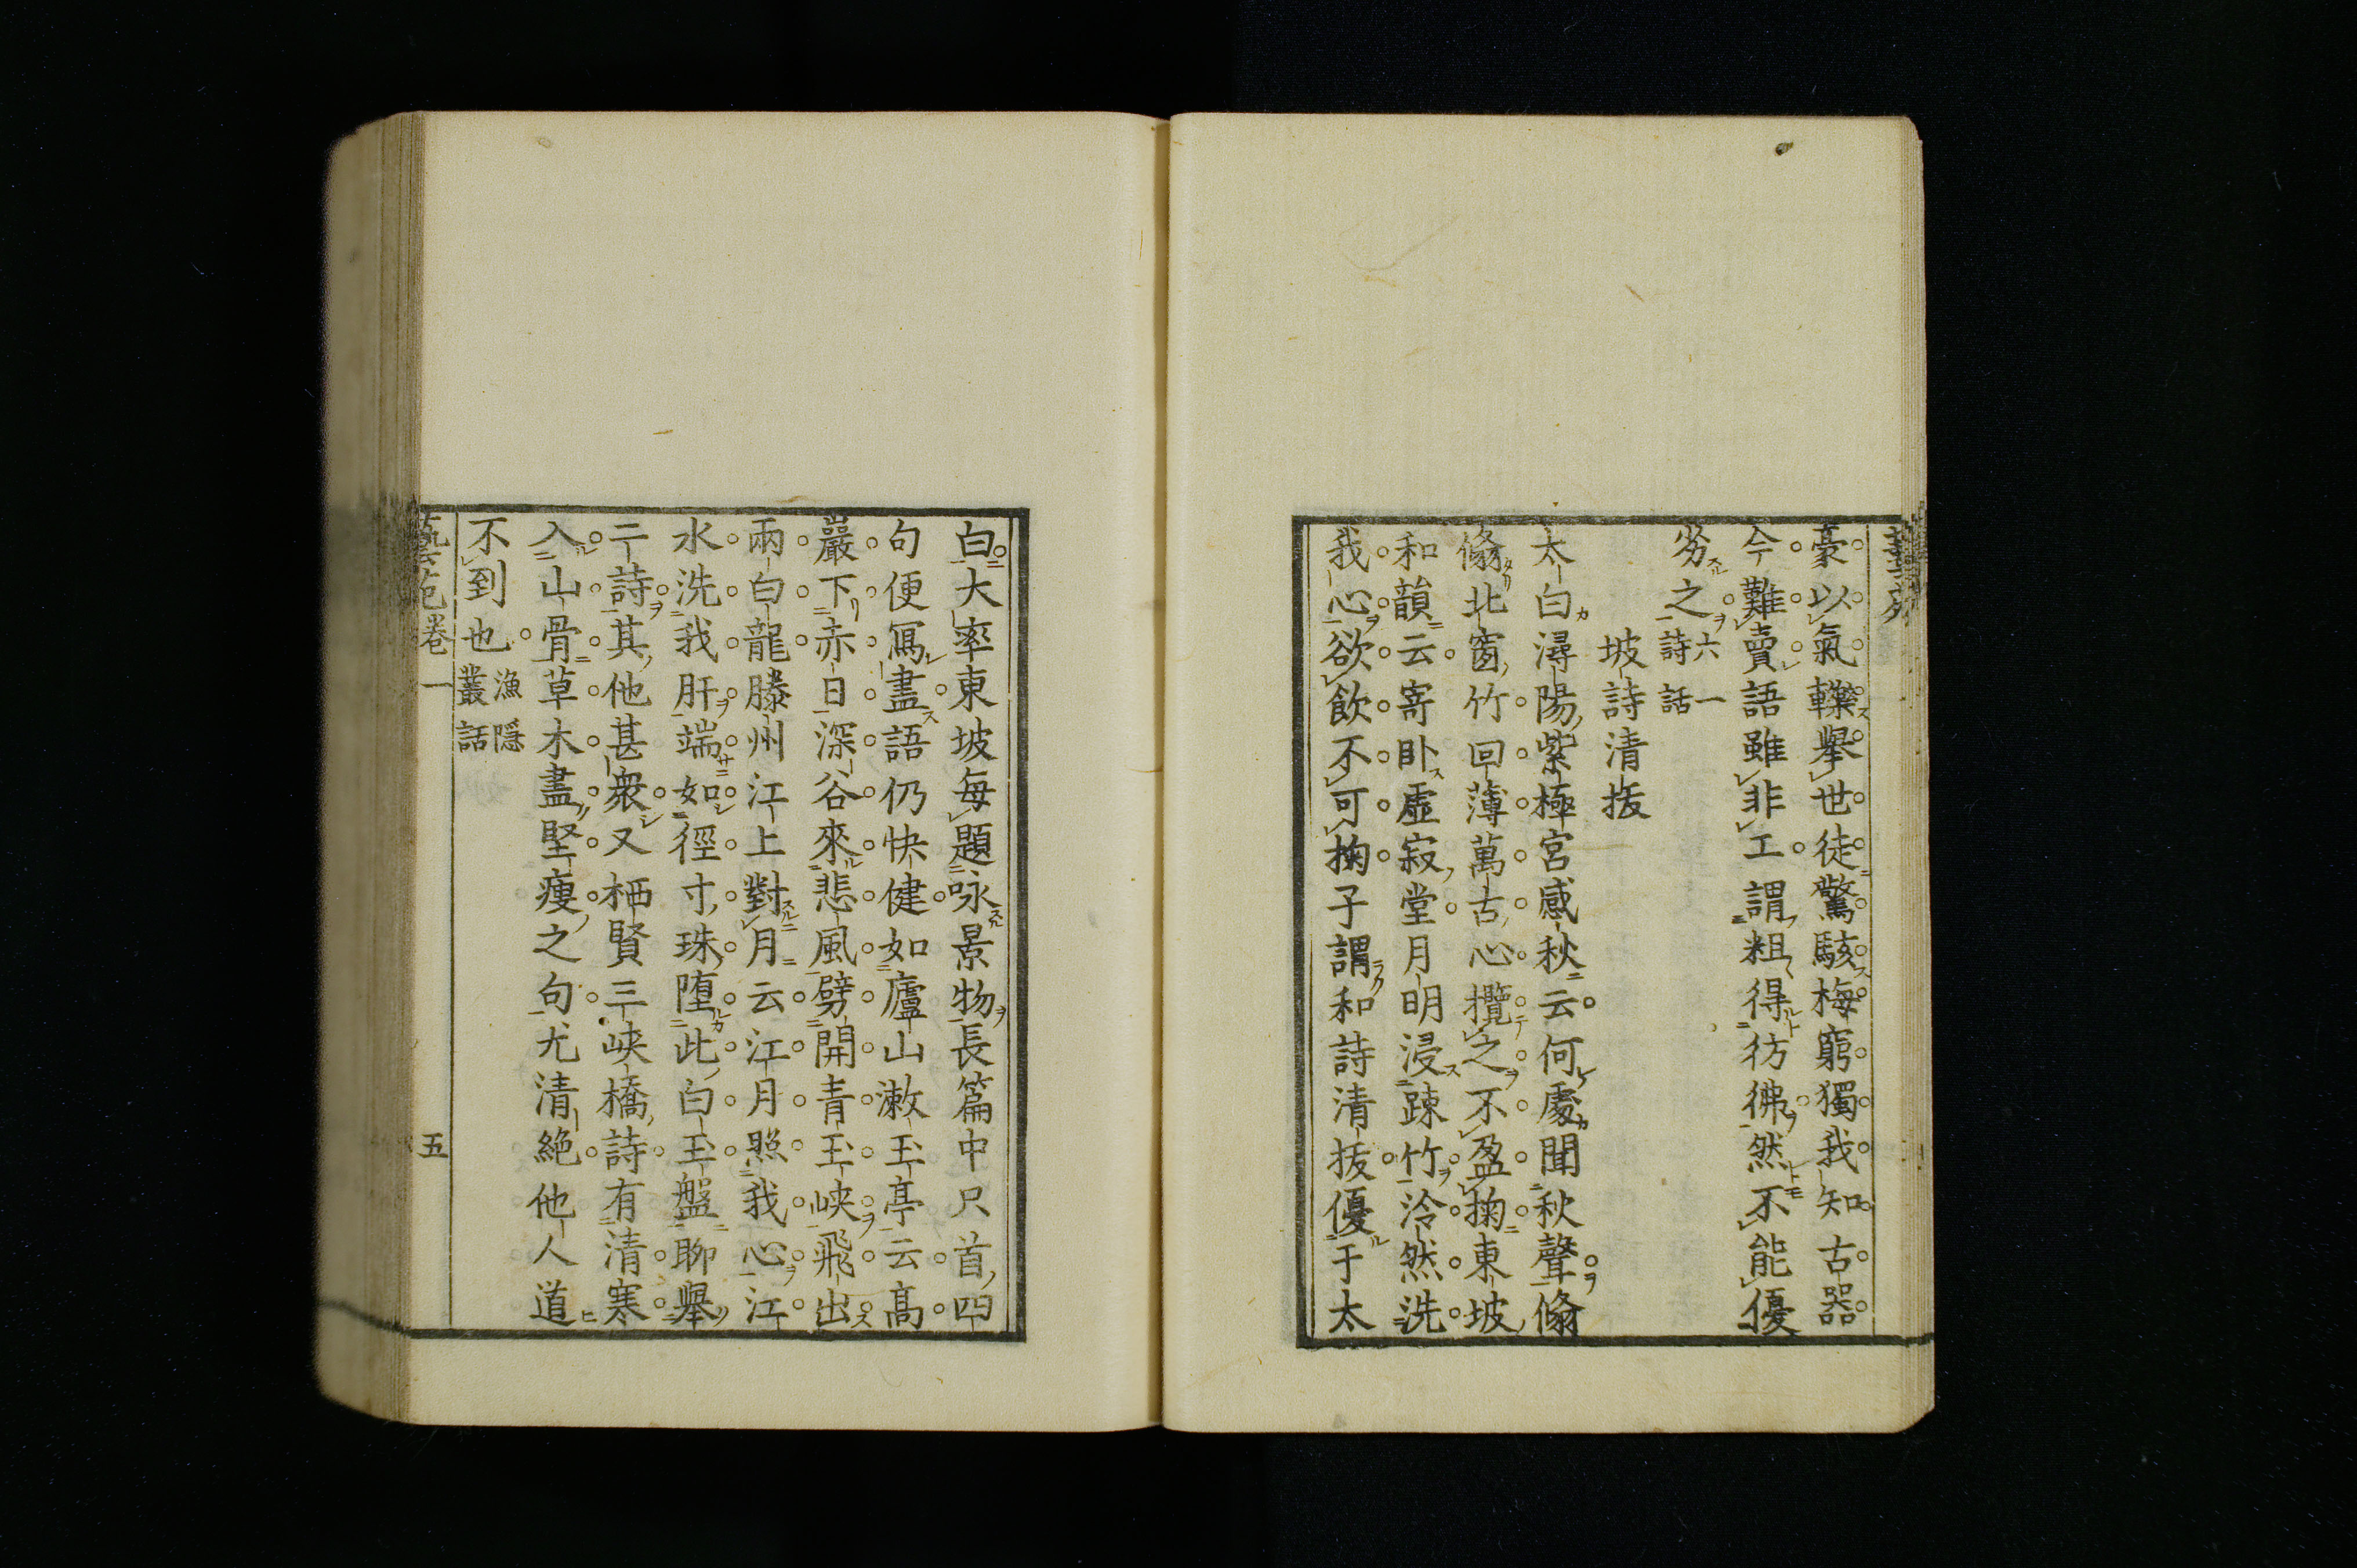 豪以氣轢擧世徒驚駭梅窮獨我知古器
今難賣語雖非工謂粗得彷彿然不能優
劣之六一詩話
坡詩清拔
太白潯陽紫極宮感秋云何處聞秋聲翛
翛北窗竹回薄萬古心攬之不盈掬東坡
和韻云寄卧虛寂堂月明浸踈竹泠然洗
我心欲飲不可掬予謂和詩清拔優于太
白大率東坡每題咏景物長篇中只首四
句便冩盡語仍快健如廬山漱玉亭云髙
巖下赤日深谷來悲風劈開青玉峽飛出
兩白龍滕州江上對月云江月照我心江
水洗我肝端如徑寸珠墮此白玉盤聊擧
二詩其他甚衆又栖賢三峽橋詩有清寒
入山骨草木盡堅瘦之句尤清絶他人道
不到也漁隱叢話
藝苑卷一 五